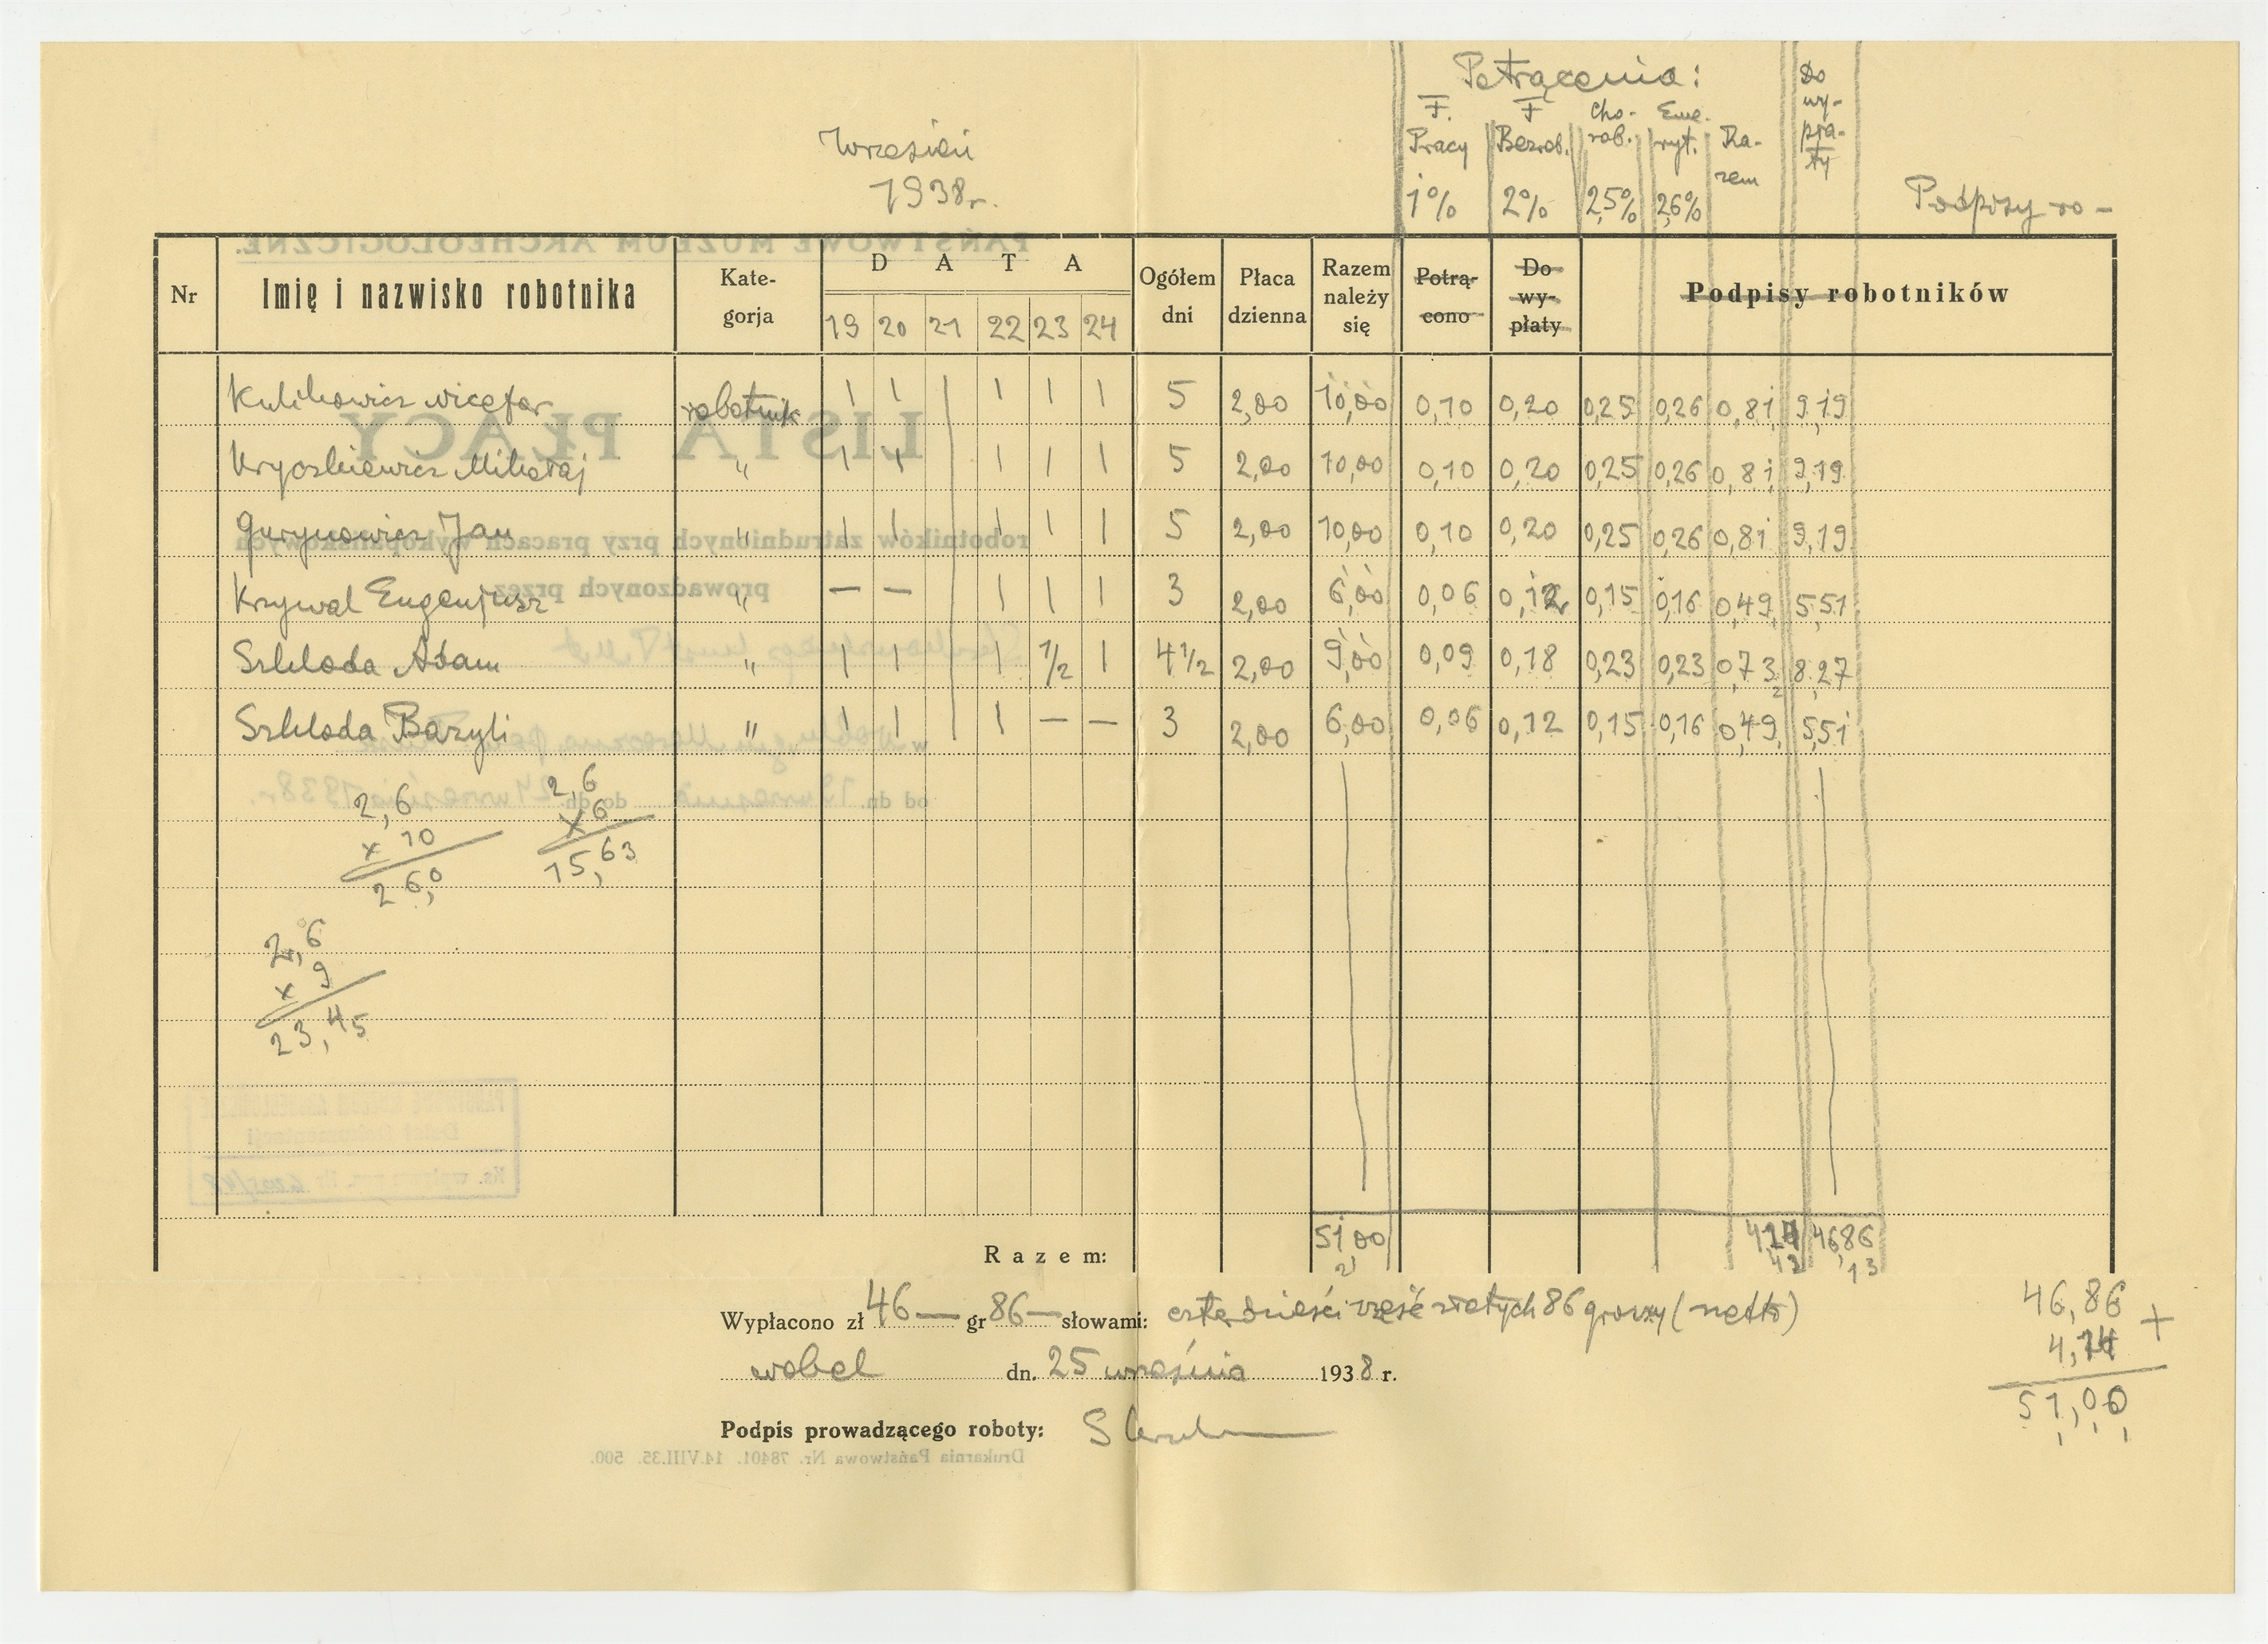 Potrącenia:
Wrzesień
1938 r.
F. Pracy 1%
F Bezrob. 2%
Cho-rob. 2,5%
Eme-ryt. 2,6%
Ra-zem
Do wy-pła-ty
Podpisy ro-
Nr Imię i nazwisko robotnika Kate-gorja D A T A Ogółem dni Płaca dzienna Razem należy się Potrą-cono Do wy-płaty Podpisy robotników
19 20 21 22 23 24
Kulikowicz Nicefor robotnik | | | | | 5 2,00 10,00 0,10 0,20 0,25 0,26 0,81 9,19
Mikołaj " | | | | | 5 2,00 10,00 0,10 0,20 0,25 0,26 0,81 9,19
Gurynowicz Jan " | | | | | 5 2,00 10,00 0,10 0,20 0,25 0,26 0,81 9,19
Krzywal Eugenjusz " — — | | | 3 2,00 6,00 0,06 0,12 0,15 0,16 0,49 5,51
Szkloda Adam " | | | 1/2 | 4 1/2 2,00 9,00 0,09 0,18 0,23 0,23 0,73 8,27
Szkloda Bazyli " | | | — — 3 2,00 6,00 0,06 0,12 0,15 0,16 0,49 5,51
2,6
x 10
26,0
2,6
x 6
15,63
2,6
x 9
23,45
Razem: 51,00 4,14 46,86
Wypłacono zł 46— gr 86— słowami: czterdzieści sześć złotych 86 groszy (netto)
Wobel dn. 25 września 1938 r.
Podpis prowadzącego roboty:
46,86
4,14 +
51,00
PAŃSTWOWE MUZEUM ARCHEOLOGICZNE.
LISTA PŁACY
robotników zatrudnionych przy pracach wykopaliskowych
prowadzonych przez
w
od dn. 19 września do dn. 24 września 1938 r.
Drukarnia Państwowa Nr. 78401. 14.VIII.35. 500.